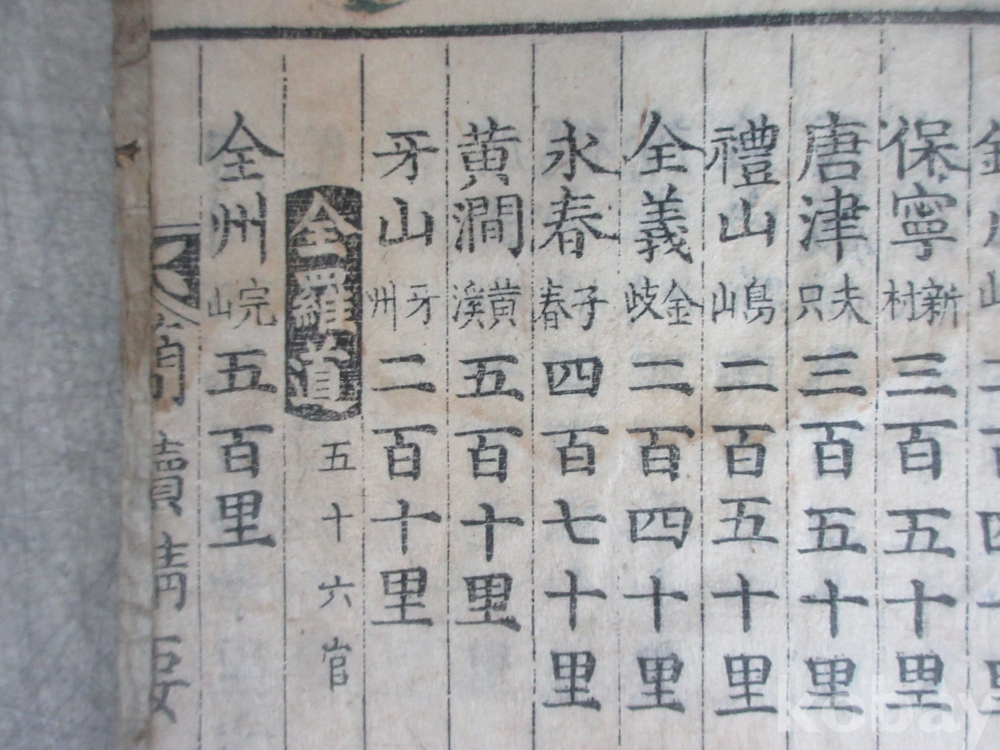 保寧 新村 三百五十里
唐津 夫只 三百五十里
禮山 烏山 二百五十里
全義 金岐 二百四十里
永春 子春 四百七十里
黄澗 黄溪 五百十里
牙山 牙州 二百十里
全羅道 五十六官
全州 完山 五百里
簡牘精要
kobay